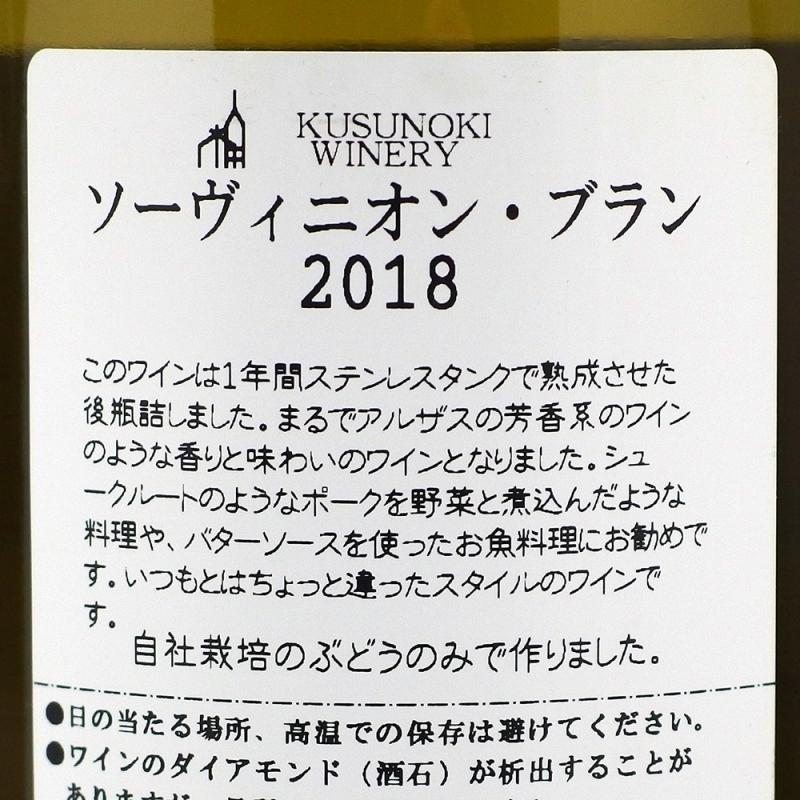 KUSUNOKI
WINERY
ソーヴィニオン・ブラン
2018
このワインは1年間ステンレスタンクで熟成させた
後瓶詰しました。まるでアルザスの芳香系のワイン
のような香りと味わいのワインとなりました。シュ
ークルートのようなポークを野菜と煮込んだような
料理や、バターソースを使ったお魚料理にお勧めで
す。いつもとはちょっと違ったスタイルのワインで
す。
自社栽培のぶどうのみで作りました。
●日の当たる場所、高温での保存は避けてください。
●ワインのダイアモンド（酒石）が析出することが
ありますが、